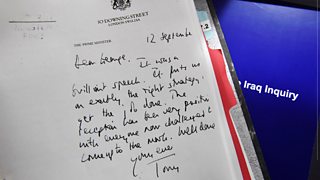 10 DOWNING STREET
LONDON SW1A 2AA
THE PRIME MINISTER
12 September
Dear George,
It was a
brilliant speech. It puts us
on exactly the right strategy
yet the job done. The
reception has been very positive
with everyone now challenged to
come up to the mark. Well done
Yours ever
Tony
Iraq Inquiry